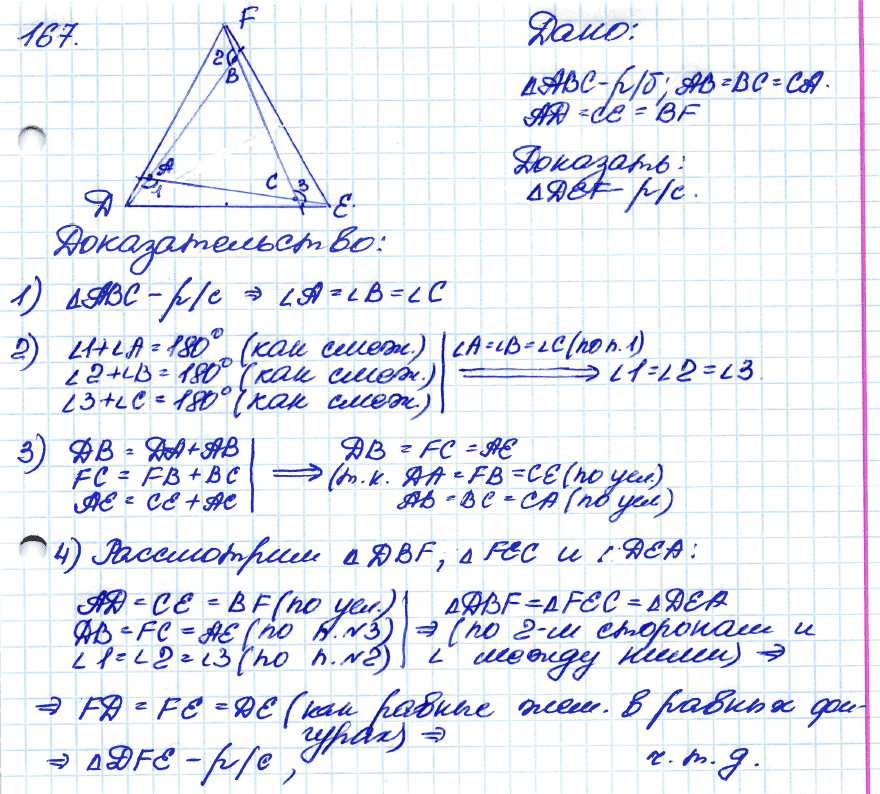 167.
F
2
B
A
3
1
C
3
1
D
E
Дано:
△ABC - р/б; AB = BC = CA.
AD = CE = BF
Доказать:
△DEF - р/с.
Доказательство:
1) △ABC - р/с ⇒ ∠A = ∠B = ∠C
2) ∠1 + ∠A = 180° (как смеж.)
∠2 + ∠B = 180° (как смеж.)
∠3 + ∠C = 180° (как смеж.)
∠A = ∠B = ∠C (по п. 1)
⇒ ∠1 = ∠2 = ∠3.
3) DB = DA + AB
FC = FB + BC
AE = CE + AC
⇒ DB = FC = AE
(т.к. DA = FB = CE (по усл.)
AB = BC = CA (по усл)
4) Рассмотрим △DBF, △FEC и DEA:
AD = CE = BF (по усл.)
DB = FC = AE (по п. №3)
∠1 = ∠2 = ∠3 (по п. №2)
△DBF = △FEC = △DEA
⇒ (по 2-м сторонам и
∠ между ними) ⇒
⇒ FD = FE = DE (как равные элем. в равных фи-
гурах) ⇒
⇒ △DFE - р/с,
ч. т. д.